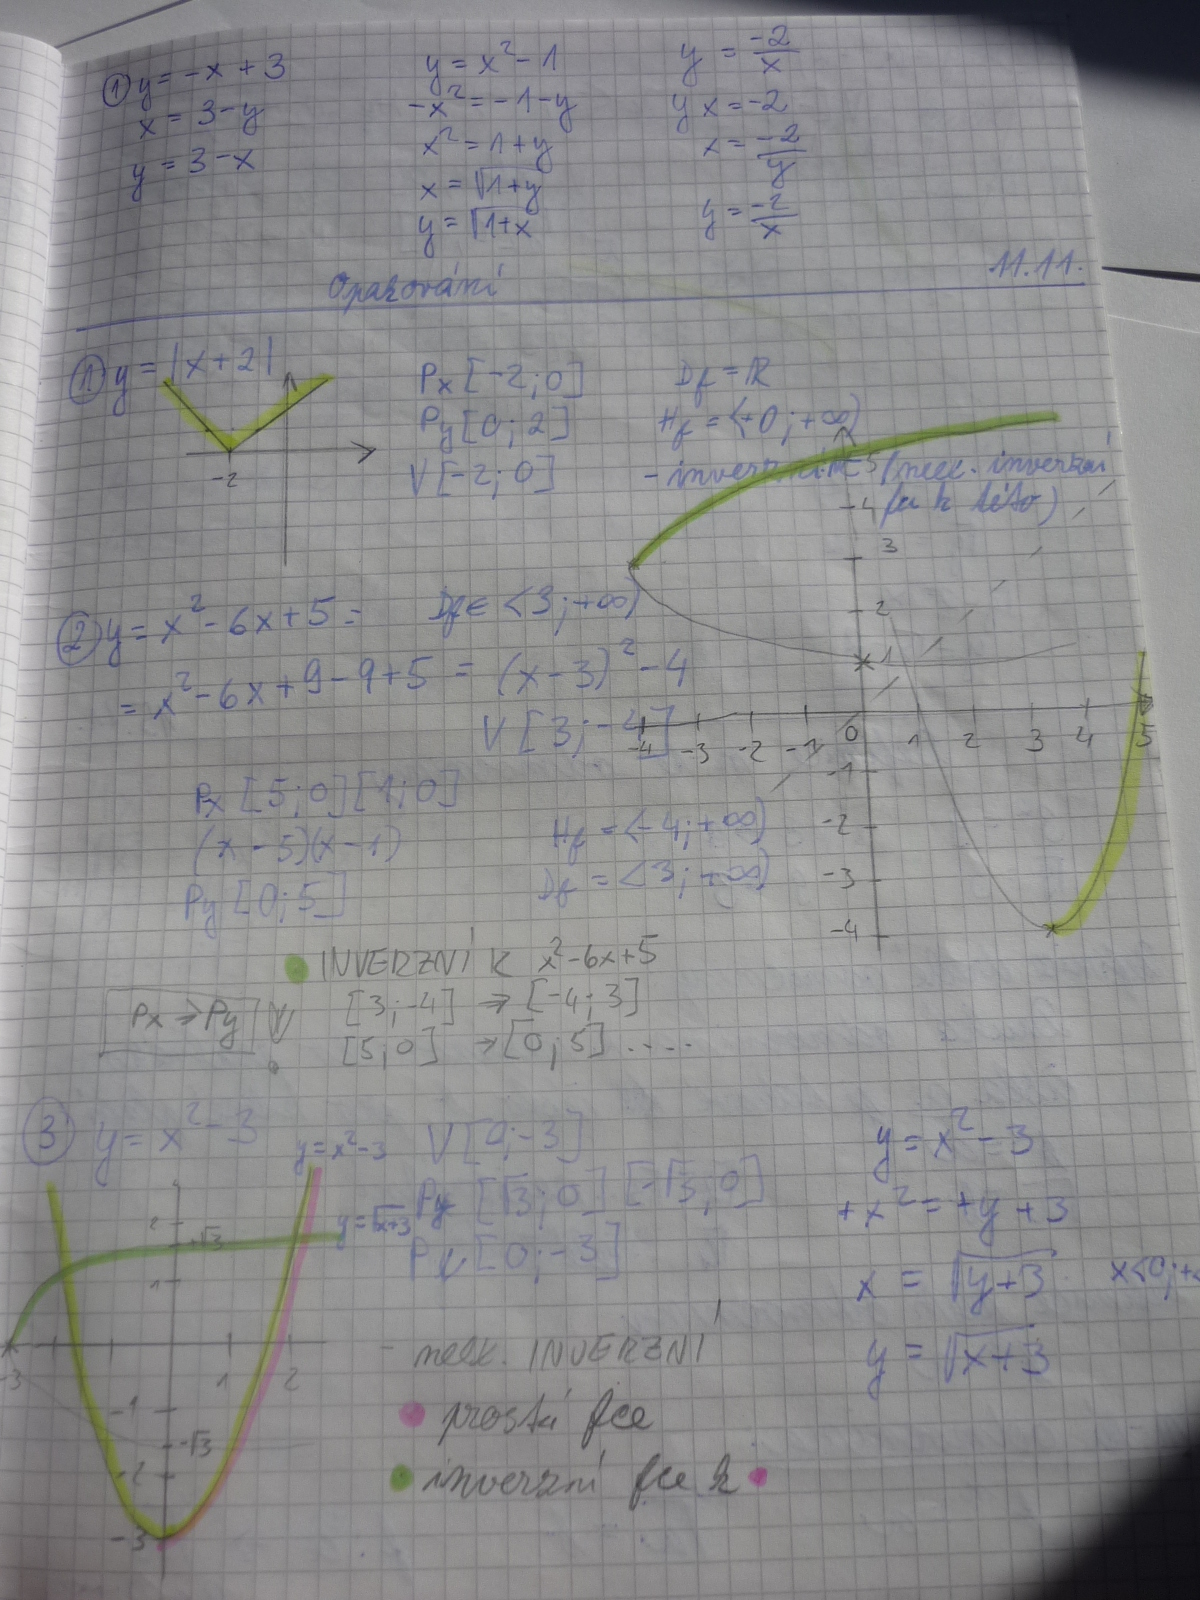 ① y = -x + 3
x = 3 - y
y = 3 - x
y = x² - 1
-x² = -1 - y
x² = 1 + y
x = √1+y
y = √1+x
y = -2/x
yx = -2
x = -2/y
y = -2/x
Opakování 11.11.
① y = |x+2|
-2
Px [-2;0]
Py [0;2]
V [-2;0]
Df = ℝ
Hf = <+0;+∞)
- inverzní (neex. inverzní
k této)
② y = x² - 6x + 5 = Df ∈ <3;+∞)
= x² - 6x + 9 - 9 + 5 = (x-3)² - 4
V [3;-4]
Px [5;0] [1;0]
(x-5)(x-1)
Py [0;5]
Hf = <-4;+∞)
Df = <3;+∞)
5
4
3
2
1
-4 -3 -2 -1 0 1 2 3 4 5
-1
-2
-3
-4
INVERZNÍ K x²-6x+5
Px → Py
[3;-4] → [-4;3]
[5;0] → [0;5] ....
③ y = x² - 3
y = x² - 3
y = √x+3
2
+√3
1
-3 1 2
-1
-√3
-2
-3
V [0;-3]
Py [√3;0] [-√3;0]
Px [0;-3]
- neex. INVERZNÍ
prostá fce
inverzní fce k
y = x² - 3
+x² = +y + 3
x = √y+3 x<0;+
y = √x+3